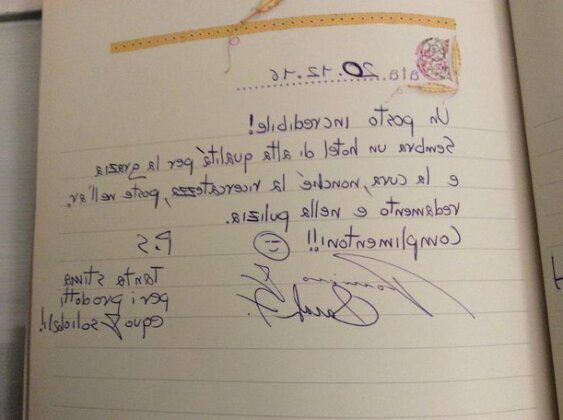 ata. 20.12.16
Un posto incredibile!
Sembra un hotel di alta qualità per la grazia
e la cura, nonché la ricercatezza, poste nell'ar-
redamento e nella pulizia.
Complimentoni!!!
P.S
Tanta stima
per i prodotti
equo e solidali!